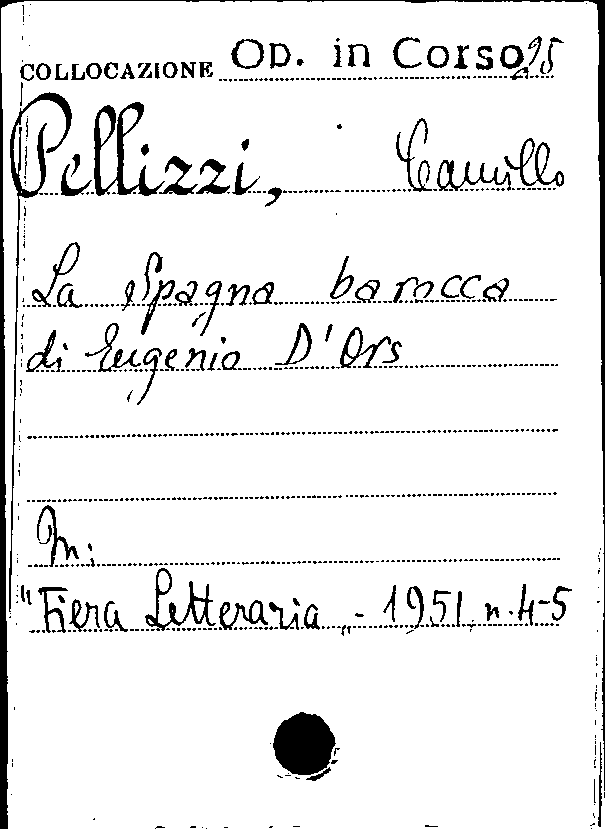 COLLOCAZIONE OD. in Corso 25
Pellizzi, Camillo
La Spagna barocca
di Eugenio D'Ors
In:
"Fiera Letteraria„ - 1951, n. 4-5